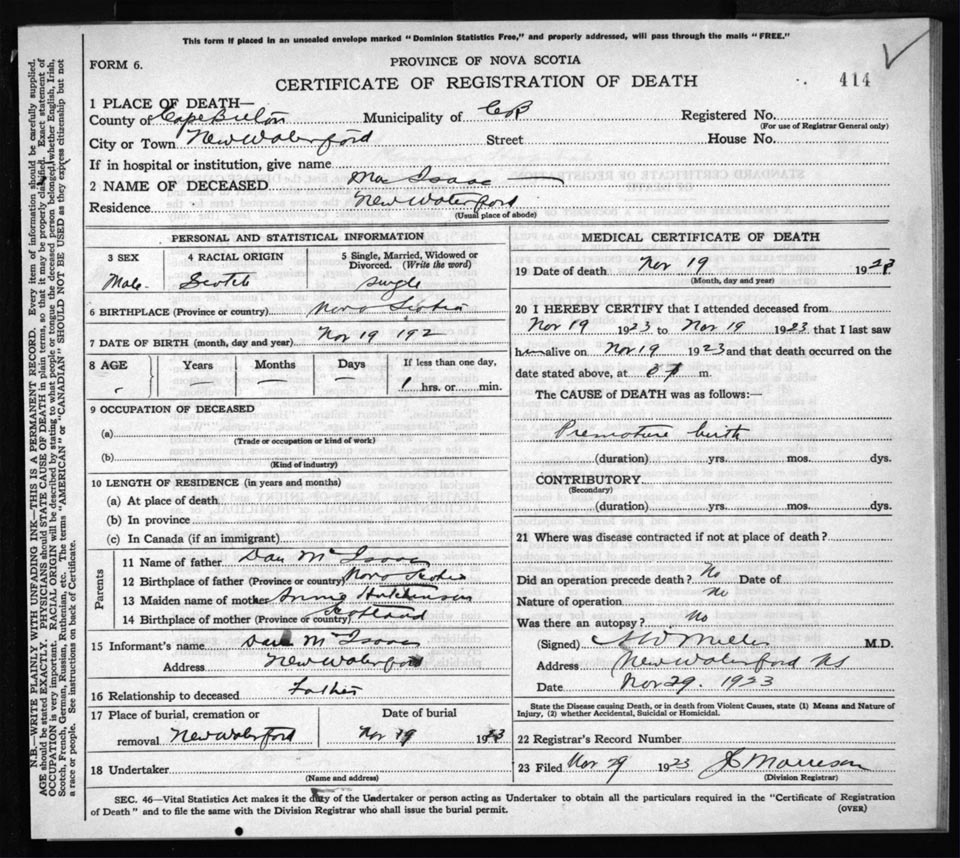 This form if placed in an unsealed envelope marked "Dominion Statistics Free," and properly addressed, will pass through the mails "FREE."
FORM 6.
PROVINCE OF NOVA SCOTIA
CERTIFICATE OF REGISTRATION OF DEATH
414
1 PLACE OF DEATH—
County of Cape Breton Municipality of CB Registered No.
(For use of Registrar General only)
City or Town New Waterford Street House No.
If in hospital or institution, give name
2 NAME OF DECEASED Mac Isaac
Residence New Waterford
(Usual place of abode)
PERSONAL AND STATISTICAL INFORMATION
3 SEX 4 RACIAL ORIGIN 5 Single, Married, Widowed or Divorced. (Write the word)
Male Scotch single
6 BIRTHPLACE (Province or country) Nova Scotia
7 DATE OF BIRTH (month, day and year) Nov 19 192
8 AGE Years Months Days If less than one day,
1 hrs. or min.
9 OCCUPATION OF DECEASED
(a)
(Trade or occupation or kind of work)
(b)
(Kind of industry)
10 LENGTH OF RESIDENCE (in years and months)
(a) At place of death
(b) In province
(c) In Canada (if an immigrant)
Parents
11 Name of father Dan McIsaac
12 Birthplace of father (Province or country) Nova Scotia
13 Maiden name of mother Annie Hutchinson
14 Birthplace of mother (Province or country) Scotland
15 Informant's name Dan McIsaac
Address New Waterford
16 Relationship to deceased Father
17 Place of burial, cremation or Date of burial
removal New Waterford Nov 19 1923
18 Undertaker
(Name and address)
MEDICAL CERTIFICATE OF DEATH
19 Date of death Nov 19 1923
(Month, day and year)
20 I HEREBY CERTIFY that I attended deceased from
Nov 19 1923 to Nov 19 1923 that I last saw
him alive on Nov 19 1923 and that death occurred on the
date stated above, at m.
The CAUSE of DEATH was as follows:—
Premature birth
(duration) yrs. mos. dys.
CONTRIBUTORY
(Secondary)
(duration) yrs. mos. dys.
21 Where was disease contracted if not at place of death?
Did an operation precede death? No Date of
Nature of operation no
Was there an autopsy? No
(Signed) Miller M.D.
Address New Waterford NS
Date Nov 29. 1923
State the Disease causing Death, or in death from Violent Causes, state (1) Means and Nature of
Injury, (2) whether Accidental, Suicidal or Homicidal.
22 Registrar's Record Number
23 Filed Nov 29 1923 J Morrison
(Division Registrar)
SEC. 46—Vital Statistics Act makes it the duty of the Undertaker or person acting as Undertaker to obtain all the particulars required in the "Certificate of Registration
of Death" and to file the same with the Division Registrar who shall issue the burial permit.
(OVER)
N.B.—WRITE PLAINLY WITH UNFADING INK—THIS IS A PERMANENT RECORD. Every item of information should be carefully supplied.
AGE should be stated EXACTLY. PHYSICIANS should STATE CAUSE OF DEATH in plain terms, so that it may be properly classified. Exact statement of
OCCUPATION is very important. RACIAL ORIGIN will be described by stating to what people or tongue the deceased person belonged, whether English, Irish,
Scotch, French, German, Russian, Ruthenian, etc. The terms "AMERICAN" or "CANADIAN" SHOULD NOT BE USED as they express citizenship but not
a race or people. See instructions on back of Certificate.